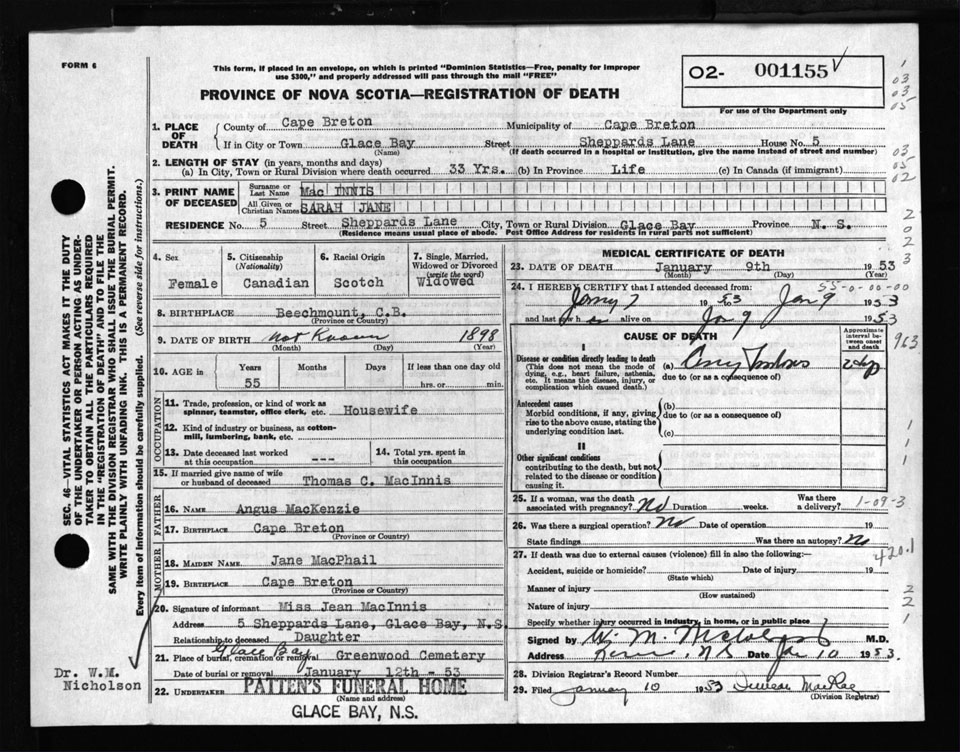 FORM 6
This form, if placed in an envelope, on which is printed "Dominion Statistics—Free, penalty for improper
use $300," and properly addressed will pass through the mail "FREE"
PROVINCE OF NOVA SCOTIA—REGISTRATION OF DEATH
O2- 001155
For use of the Department only
1. PLACE OF DEATH
County of Cape Breton Municipality of Cape Breton
If in City or Town Glace Bay Street Sheppards Lane House No. 5
(Name) (If death occurred in a hospital or institution, give the name instead of street and number)
2. LENGTH OF STAY (in years, months and days)
(a) In City, Town or Rural Division where death occurred 33 Yrs. (b) In Province Life (c) In Canada (if immigrant)
3. PRINT NAME OF DECEASED
Surname or Last Name Mac INNIS
All Given or Christian Names SARAH JANE
RESIDENCE No. 5 Street Sheppards Lane City, Town or Rural Division Glace Bay Province N. S.
(Residence means usual place of abode. Post Office Address for residents in rural parts not sufficient)
4. Sex
Female
5. Citizenship
(Nationality)
Canadian
6. Racial Origin
Scotch
7. Single, Married,
Widowed or Divorced
(write the word)
Widowed
8. BIRTHPLACE Beechmount, C.B.
(Province or Country)
9. DATE OF BIRTH Not Known 1898
(Month) (Day) (Year)
10. AGE in
Years Months Days If less than one day old
55 hrs. or min.
OCCUPATION
11. Trade, profession, or kind of work as
spinner, teamster, office clerk, etc. Housewife
12. Kind of industry or business, as cotton-
mill, lumbering, bank, etc.
13. Date deceased last worked
at this occupation ---
14. Total yrs. spent in
this occupation
15. If married give name of wife
or husband of deceased Thomas C. MacInnis
FATHER
16. NAME Angus MacKenzie
17. BIRTHPLACE Cape Breton
(Province or Country)
MOTHER
18. MAIDEN NAME Jane MacPhail
19. BIRTHPLACE Cape Breton
(Province or Country)
20. Signature of informant Miss Jean MacInnis
Address 5 Sheppards Lane, Glace Bay, N.S.
Relationship to deceased Daughter
Glace Bay
21. Place of burial, cremation or removal Greenwood Cemetery
Date of burial or removal January 12th - 53
22. UNDERTAKER PATTEN'S FUNERAL HOME
(Name and address)
GLACE BAY, N.S.
MEDICAL CERTIFICATE OF DEATH
23. DATE OF DEATH January 9th 1953
(Month) (Day) (Year)
24. I HEREBY CERTIFY that I attended deceased from:
55-0-00-00
Jany 7 1953 Jan 9 1953
and last saw h er alive on Jan 9 1953
CAUSE OF DEATH
Approximate
interval between
onset
and death
I
Disease or condition directly leading to death
(This does not mean the mode of
dying, e.g., heart failure, asthenia,
etc. It means the disease, injury, or
complication which caused death.)
(a)
due to (or as a consequence of)
Antecedent causes
Morbid conditions, if any, giving
rise to the above cause, stating the
underlying condition last.
(b)
due to (or as a consequence of)
(c)
II
Other significant conditions
contributing to the death, but not
related to the disease or condition
causing it.
25. If a woman, was the death
associated with pregnancy? No Duration weeks. Was there
a delivery? 1-09-3
26. Was there a surgical operation? No Date of operation 19
State findings Was there an autopsy? No
420.1
27. If death was due to external causes (violence) fill in also the following:—
Accident, suicide or homicide? Date of injury 19
(State which)
Manner of injury
(How sustained)
Nature of injury
Specify whether injury occurred in industry, in home, or in public place
Signed by M.D.
Address N.S Date Jan 10 1953.
28. Division Registrar's Record Number
29. Filed January 10 1953 MacRae
(Division Registrar)
SEC. 46—VITAL STATISTICS ACT MAKES IT THE DUTY
OF THE UNDERTAKER OR PERSON ACTING AS UNDER-
TAKER TO OBTAIN ALL THE PARTICULARS REQUIRED
IN THE "REGISTRATION OF DEATH" AND TO FILE THE
SAME WITH THE DIVISION REGISTRAR WHO SHALL ISSUE THE BURIAL PERMIT.
WRITE PLAINLY WITH UNFADING INK. THIS IS A PERMANENT RECORD.
Every item of information should be carefully supplied. (See reverse side for instructions.)
Dr. W.M.
Nicholson
1
03
03
05
03
05
02
2
0
2
3
963
1
1
1
2
2
1